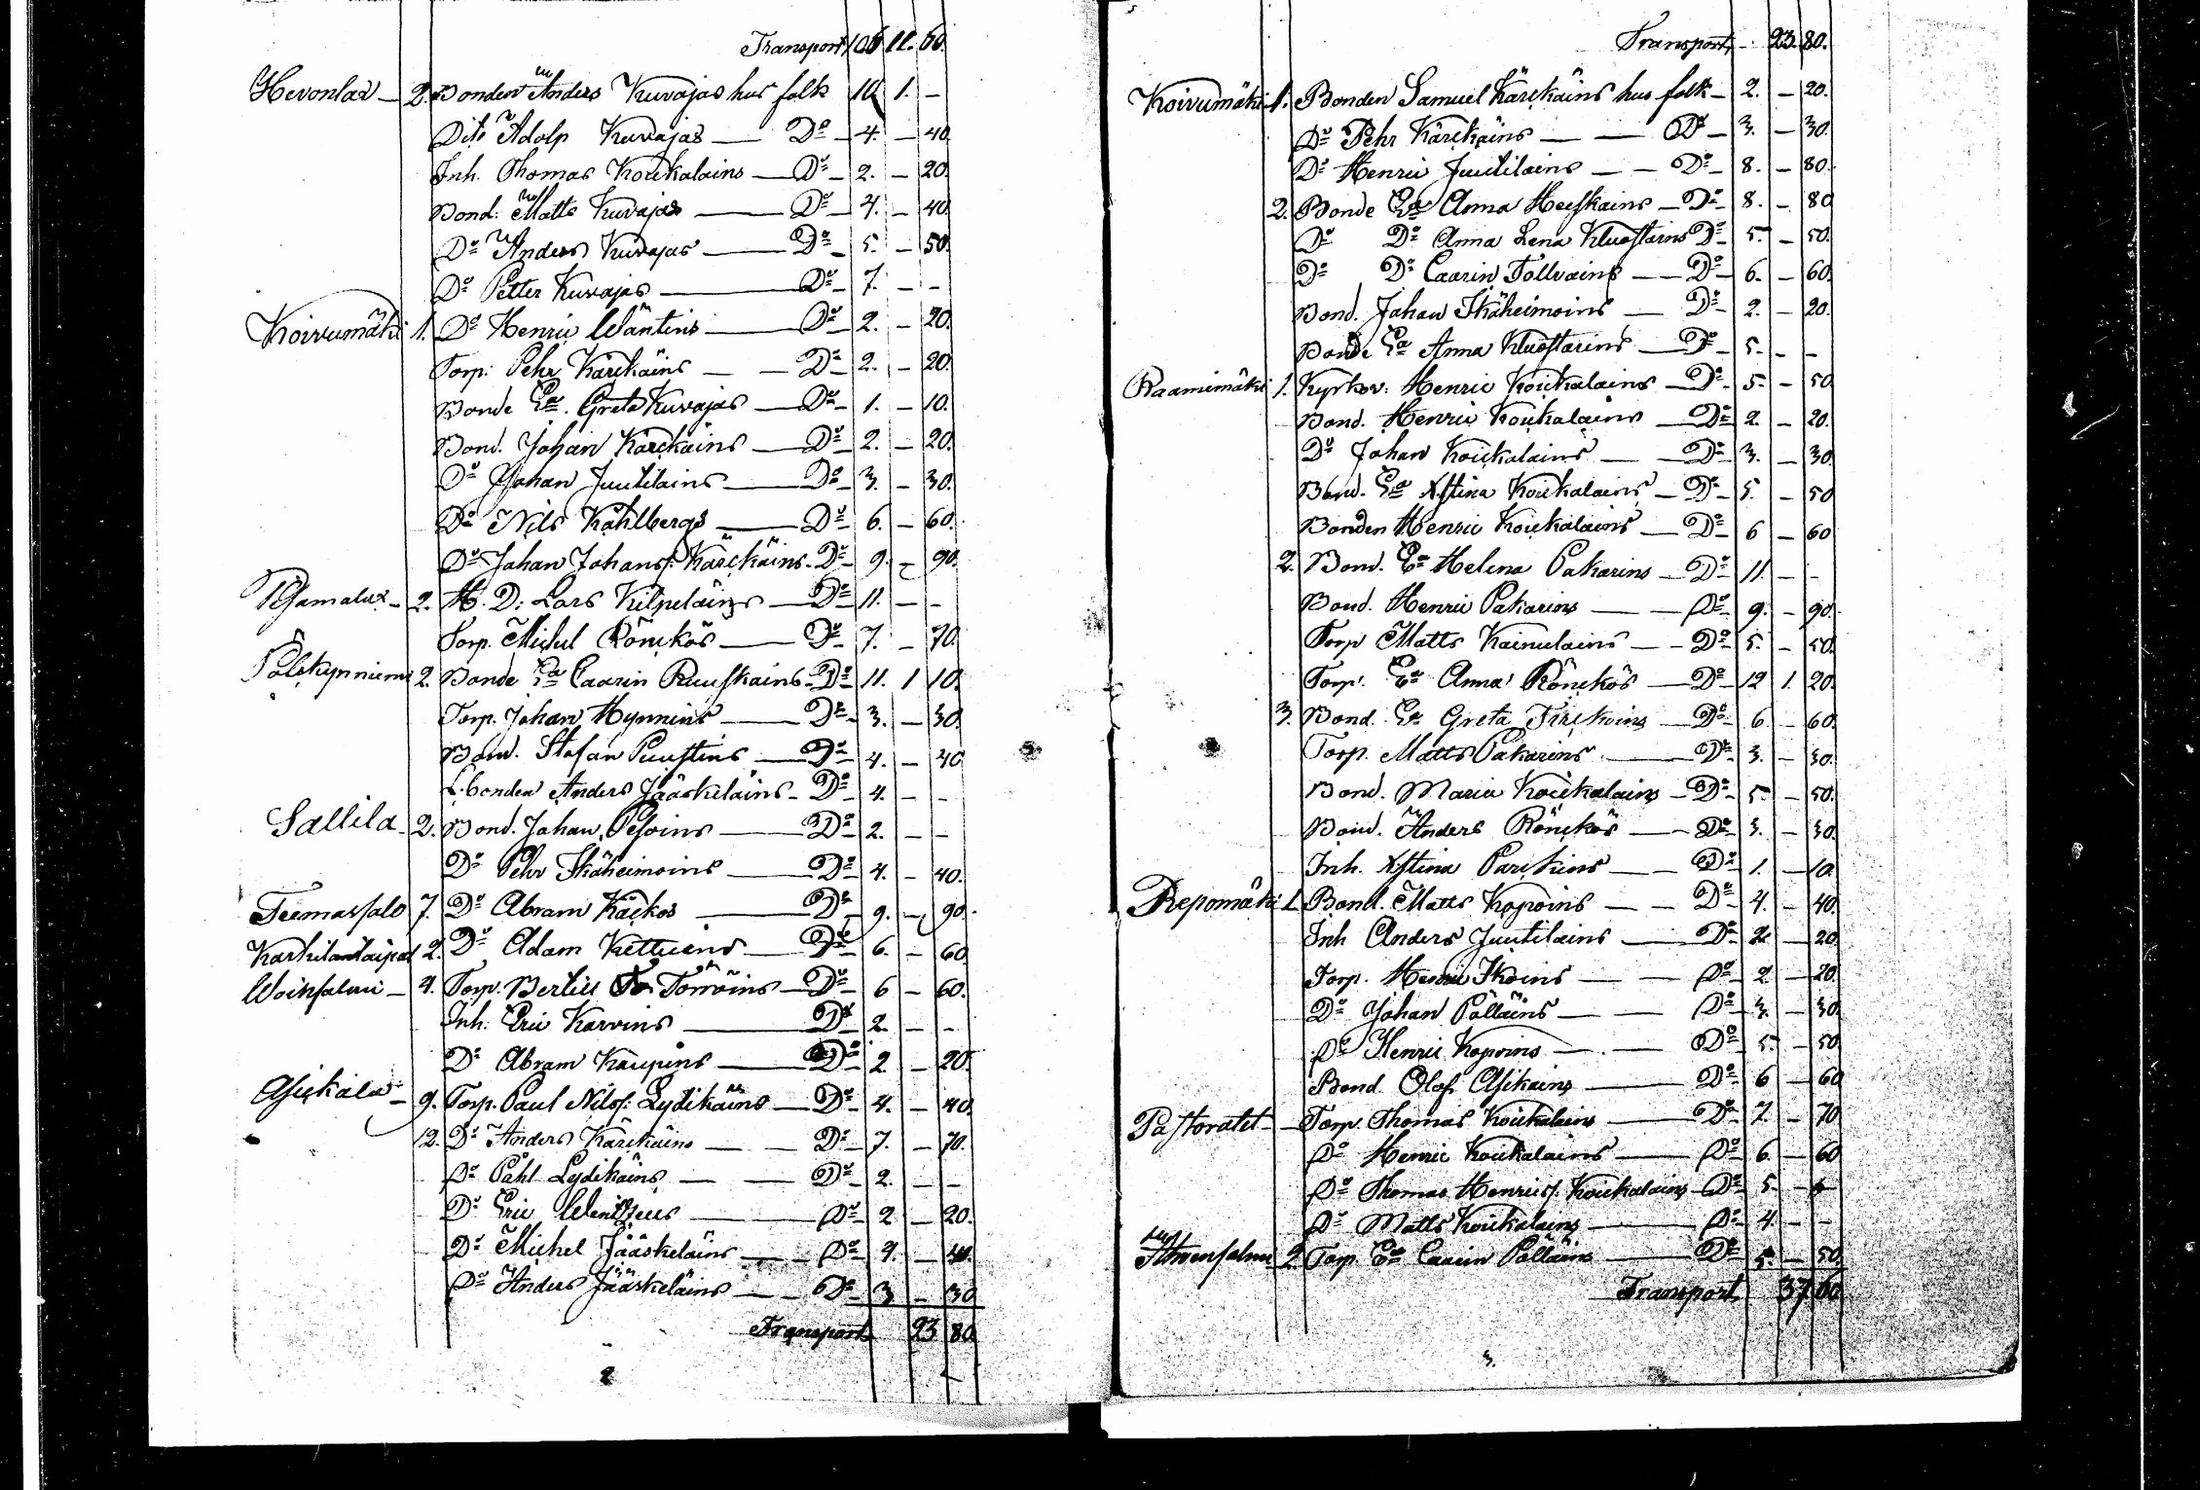 Transport 105 11. 60.
Hevonlax — 2. Bonden Anders Kuvajas hus folk 10. 1. —
Dito Adolp Kuvajas — Do — 4. — 40.
Inh. Thomas Koukalains — Do — 2. — 20.
Bond: Matts Kuvajas — Do — 4. — 40.
Do Anders Kuvajas — Do — 5. — 50.
Do Petter Kuvajas — Do — 7. — —
Koivumäki 1. Do Henric Wäntins — Do — 2. — 20.
Torp: Pehr Kärckäins — Do — 2. — 20.
Bonde Ea. Greta Kuvajas — Do — 1. — 10.
Bond. Johan Kärckäins — Do — 2. — 20.
Do Johan Juutilains — Do — 3. — 30.
Do Nils Kahlbergs — Do — 6. — 60.
Do Johan Johanss. Kärckäins — Do — 9. — 90.
2. H. D: Lars Kilpeläins — Do — 11. — —
Torp. Michel Rönckös — Do — 7. — 70.
2. Bonde Ea Caarin Ruuskains — Do — 11. 1 10.
Torp. Johan Hynnins — Do — 3. — 30.
Bond. Stefan Puustins — Do — 4. — 40
Bonden Anders Jääskeläins — Do — 4. — —
Sallila — 2. Bond. Johan Pesoins — Do — 2. — —
Do Pehr Ikäheimoins — Do — 4. — 40.
Teemassalo 7. Do Abram Käckös — Do — 9. — 90.
2. Do Adam Kettuins — Do — 6. — 60.
Woinsalmi — 4. Torp. Bertill Törröins — Do — 6 — 60.
Inh: Eric Karvins — Do — 2. — —
Do Abram Kaupins — Do — 2 — 20.
Asickala — 9. Torp. Paul Nilss. Lydikäins — Do — 4. — 40.
12. Do Anders Kärckäins — Do — 7. — 70.
Do Påhl Lydikäins — Do — 2. — —
Do Eric — Do — 2 — 20.
Do Michel Jääskeläins — Do — 4. — 40.
Do Anders Jääskeläins — Do — 3 — 30
Transport 23 80.
2
Transport — 23. 80.
Koivumäki 1. Bonden Samuel Kärckäins hus folk — 2. — 20.
Do Pehr Kärckäins — Do — 3. — 30.
Do Henric Juutilains — Do — 8. — 80.
2. Bonde Ea Anna Heiskains — Do — 8. — 80
Do Do Anna Lena Kluustarins Do — 5. — 50.
Do Do Caarin Tollvains — Do — 6. — 60.
Bond. Johan Ikäheimoins — Do — 2. — 20.
Bonde Ea Anna Kluustarins — Do — 5. — —
Raanimäki 1. Kyrkov: Henric Koukalains — Do — 5. — 50.
Bond. Henric Koukalains — Do — 2. — 20.
Do Johan Koukalains — Do — 3. — 30.
Bond. Ea Xstina Koukalains — Do — 5. — 50
Bonden Henric Koukalains — Do — 6 — 60
2. Bond. Ea Helena Pakarins — Do — 11. — —
Bond. Henric Pakarins — Do — 9. — 90.
Torp Matts Kainulains — Do — 5. — 50.
Torp. Ea Anna Rönckös — Do — 12 1. 20.
3. Bond. Ea Greta — Do — 6. — 60.
Torp. Matts Pakarins — Do — 3. — 30.
Bond. Maria Koukalains — Do — 5. — 50.
Bond. Anders Rönckös — Do — 3. — 30.
Inh. Xstina Parckins — Do — 1. — 10.
Repomäki 1. Bond. Matts Kopoins — Do — 4. — 40.
Inh Anders Juutilains — Do — 2. — 20.
Torp. Henric Ikoins — Do — 2 — 20.
Do Johan Pölläins — Do — 3. — 30.
Do Henric Kopoins — Do — 5. — 50
Bond. Olof Asikains — Do — 6 — 60
Pastoratet — Torp. Thomas Koukalains — Do — 7. — 70
Do Henric Koukalains — Do — 6. — 60
Do Thomas Henrics. Koukalains — Do — 5. —
Do Matts Koukalains — Do — 4. — —
2. Torp. Ea Caarin Pölläins — Do — 5. — 50.
Transport 37 60
3.